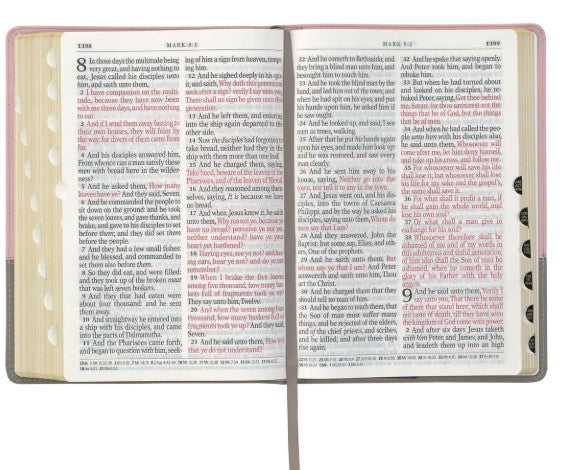 1398 MARK 8:1
8 In those days the multitude being
very great, and having nothing to
eat, Jesus called his disciples unto
him, and saith unto them,
2 I have compassion on the multi-
tude, because they have now been
with me three days, and have nothing
to eat:
3 And if I send them away fasting to
their own houses, they will faint by
the way: for divers of them came from
far.
4 And his disciples answered him,
From whence can a man satisfy these
men with bread here in the wilder-
ness?
5 And he asked them, How many
loaves have ye? And they said, Seven.
6 And he commanded the people to
sit down on the ground: and he took
the seven loaves, and gave thanks, and
brake, and gave to his disciples to set
before them; and they did set them
before the people.
7 And they had a few small fishes:
and he blessed, and commanded to
set them also before them.
8 So they did eat, and were filled:
and they took up of the broken meat
that was left seven baskets.
9 And they that had eaten were
about four thousand: and he sent
them away.
10 And straightway he entered into
a ship with his disciples, and came
into the parts of Dalmanutha.
11 And the Pharisees came forth,
and began to question with him, seek-
ing of him a sign from heaven, tempt-
ing him.
12 And he sighed deeply in his spi-
rit, and saith, Why doth this generation
seek after a sign? verily I say unto you,
There shall no sign be given unto this
generation.
13 And he left them, and entering
into the ship again departed to the
other side.
14 Now the disciples had forgotten to
take bread, neither had they in the
ship with them more than one loaf.
15 And he charged them, saying,
Take heed, beware of the leaven of the
Pharisees, and of the leaven of Herod.
16 And they reasoned among them-
selves, saying, It is because we have
no bread.
17 And when Jesus knew it, he saith
unto them, Why reason ye, because ye
have no bread? perceive ye not yet,
neither understand? have ye your
heart yet hardened?
18 Having eyes, see ye not? and hav-
ing ears, hear ye not? and do ye not
remember?
19 When I brake the five loaves
among five thousand, how many bas-
kets full of fragments took ye up?
They say unto him, Twelve.
20 And when the seven among four
thousand, how many baskets full of
fragments took ye up? And they said,
Seven.
21 And he said unto them, How is it
that ye do not understand?
MARK 9:2 1399
22 And he cometh to Bethsaida; and
they bring a blind man unto him, and
besought him to touch him.
23 And he took the blind man by the
hand, and led him out of the town; and
when he had spit on his eyes, and put
his hands upon him, he asked him if
he saw ought.
24 And he looked up, and said, I see
men as trees, walking.
25 After that he put his hands again
upon his eyes, and made him look up:
and he was restored, and saw every
man clearly.
26 And he sent him away to his
house, saying, Neither go into the
town, nor tell it to any in the town.
27 And Jesus went out, and his dis-
ciples, into the towns of Caesarea
Philippi: and by the way he asked his
disciples, saying unto them, Whom do
men say that I am?
28 And they answered, John the
Baptist: but some say, Elias; and oth-
ers, One of the prophets.
29 And he saith unto them, But
whom say ye that I am? And Peter
answereth and saith unto him, Thou
art the Christ.
30 And he charged them that they
should tell no man of him.
31 And he began to teach them, that
the Son of man must suffer many
things, and be rejected of the elders,
and of the chief priests, and scribes,
and be killed, and after three days
rise again.
32 And he spake that saying openly.
And Peter took him, and began to
rebuke him.
33 But when he had turned about
and looked on his disciples, he re-
buked Peter, saying, Get thee behind
me, Satan: for thou savourest not the
things that be of God, but the things
that be of men.
34 And when he had called the peo-
ple unto him with his disciples also,
he said unto them, Whosoever will
come after me, let him deny himself,
and take up his cross, and follow me.
35 For whosoever will save his life
shall lose it; but whosoever shall lose
his life for my sake and the gospel's,
the same shall save it.
36 For what shall it profit a man, if
he shall gain the whole world, and
lose his own soul?
37 Or what shall a man give in
exchange for his soul?
38 Whosoever therefore shall be
ashamed of me and of my words in
this adulterous and sinful generation;
of him also shall the Son of man be
ashamed, when he cometh in the
glory of his Father with the holy
angels.
9 And he said unto them, Verily I
say unto you, That there be some
of them that stand here, which shall
not taste of death, till they have seen
the kingdom of God come with power.
2 And after six days Jesus taketh
with him Peter, and James, and John,
and leadeth them up into an high